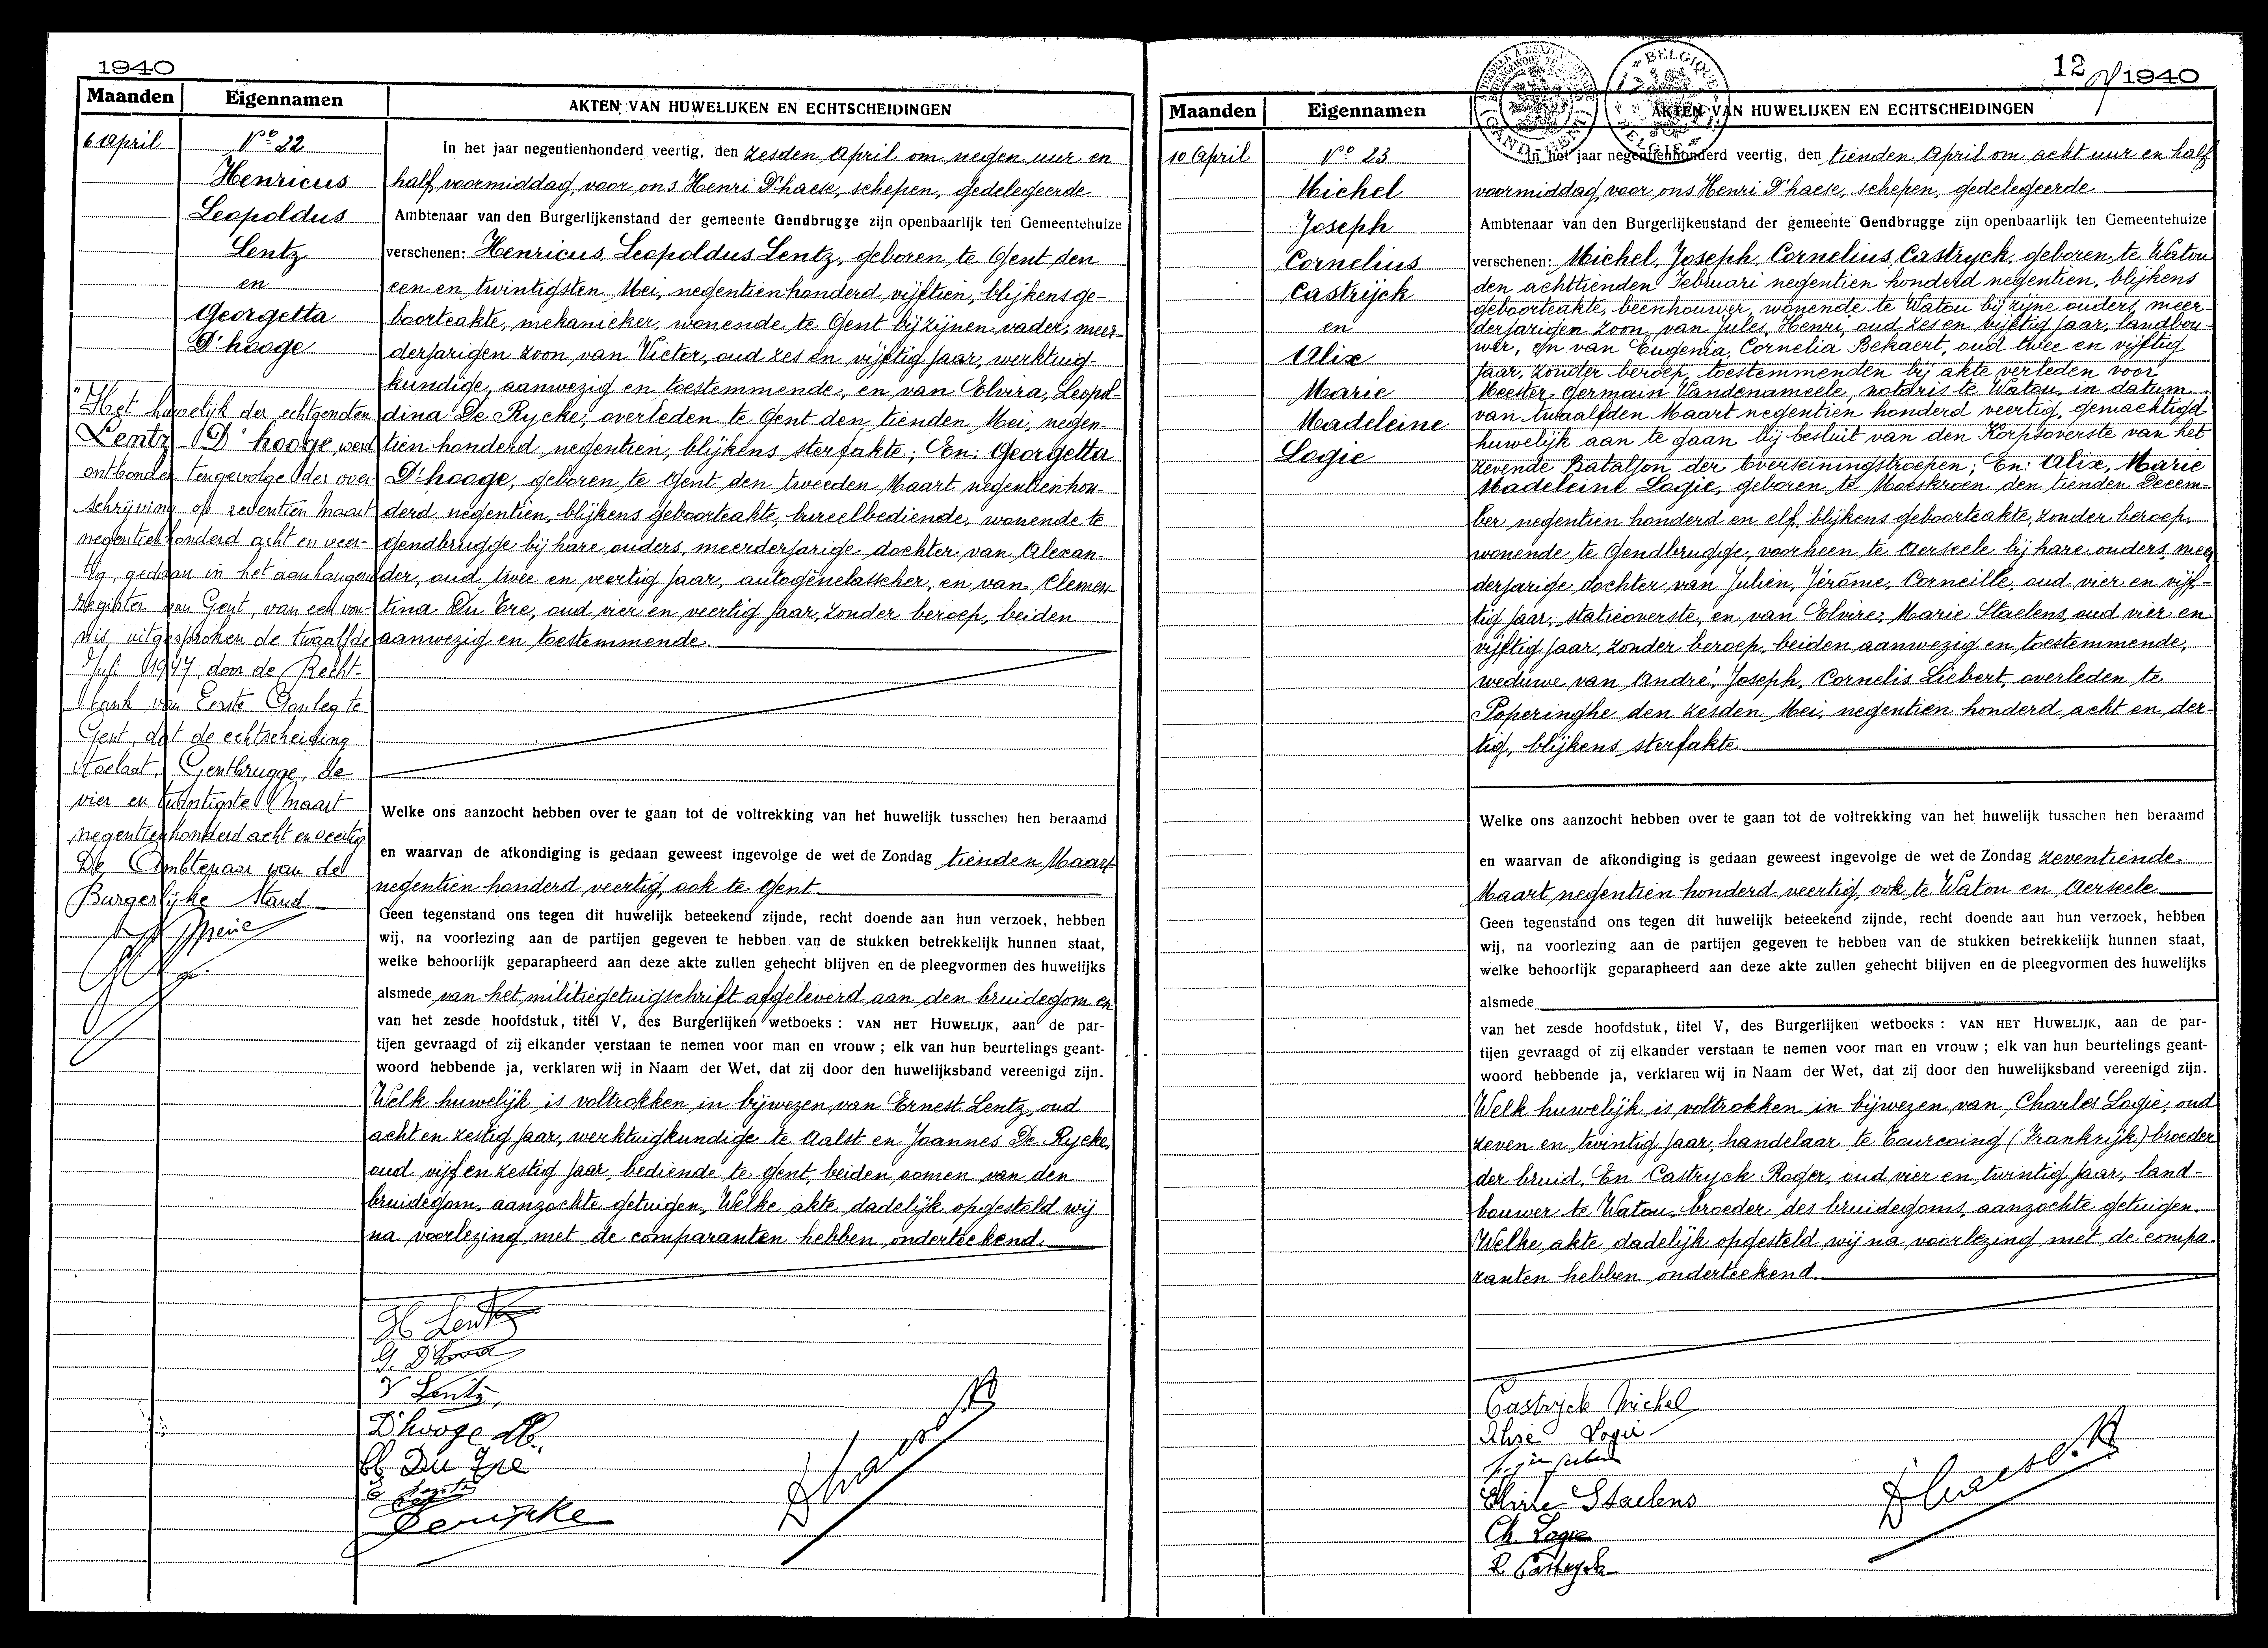 1940
Maanden Eigennamen AKTEN VAN HUWELIJKEN EN ECHTSCHEIDINGEN
6 April
N° 22
Henricus
Leopoldus
Lentz
en
Georgetta
D'hooge
"Het huwelijk der echtgenoten
Lentz - D'hooge werd
ontbonden tengevolge der over-
schrijving op zeventien Maart
negentienhonderd acht en veer-
tig, gedaan in het aanhangend
Register van Gent, van een von-
nis uitgesproken de twaalfde
Juli 1947 door de Recht-
bank van Eerste Aanleg te
Gent, dat de echtscheiding
toelaat, Gentbrugge, de
vier en twintigste Maart
negentienhonderd acht en veertig
De Ambtenaar van de
Burgerlijke Stand
In het jaar negentienhonderd veertig, den zesden April om negen uur en
half voormiddag, voor ons Henri D'haese, schepen, gedelegeerde
Ambtenaar van den Burgerlijkenstand der gemeente Gendbrugge zijn openbaarlijk ten Gemeentehuize
verschenen: Henricus, Leopoldus Lentz, geboren te Gent den
een en twintigsten Mei, negentienhonderd vijftien, blijkens ge-
boorteakte, mekanieker, wonende te Gent bij zijnen vader, meer-
derjarigen zoon van Victor, oud zes en vijftig jaar, werktuig-
kundige, aanwezig en toestemmende, en van Elvira, Leopol-
dina De Rycke, overleden te Gent den tienden Mei, negen-
tien honderd negentien, blijkens sterfakte; En: Georgetta
D'hooge, geboren te Gent den tweeden Maart negentienhon-
derd negentien, blijkens geboorteakte, bureelbediende, wonende te
Gendbrugge bij hare ouders, meerderjarige dochter van Alexan-
der, oud twee en veertig jaar, autogènelasscher, en van Clemen-
tina Du Tre, oud vier en veertig jaar, zonder beroep, beiden
aanwezig en toestemmende.
Welke ons aanzocht hebben over te gaan tot de voltrekking van het huwelijk tusschen hen beraamd
en waarvan de afkondiging is gedaan geweest ingevolge de wet de Zondag tienden Maart
negentien honderd veertig, ook te Gent
Geen tegenstand ons tegen dit huwelijk beteekend zijnde, recht doende aan hun verzoek, hebben
wij, na voorlezing aan de partijen gegeven te hebben van de stukken betrekkelijk hunnen staat,
welke behoorlijk geparapheerd aan deze akte zullen gehecht blijven en de pleegvormen des huwelijks
alsmede van het militiegetuigschrift afgeleverd aan den bruidegom en
van het zesde hoofdstuk, titel V, des Burgerlijken wetboeks : VAN HET HUWELIJK, aan de par-
tijen gevraagd of zij elkander verstaan te nemen voor man en vrouw ; elk van hun beurtelings geant-
woord hebbende ja, verklaren wij in Naam der Wet, dat zij door den huwelijksband vereenigd zijn.
Welk huwelijk is voltrokken in bijwezen van Ernest Lentz, oud
acht en zestig jaar, werktuigkundige te Aalst en Joannes De Rycke,
oud vijf en zestig jaar, bediende te Gent, beiden oomen van den
bruidegom, aanzochte getuigen, Welke akte dadelijk opgesteld wij
na voorlezing met de comparanten hebben onderteekend.
H Lentz
G. D'hooge
V Lentz
D'hooge Al.
Cl Du Tre
E Lentz
Derijcke
12
1940
BELGIQUE
Maanden Eigennamen AKTEN VAN HUWELIJKEN EN ECHTSCHEIDINGEN
10 April
N° 23
Michel
Joseph
Cornelius
Castrijck
en
Alix
Marie
Madeleine
Logie
In het jaar negentienhonderd veertig, den tienden April om acht uur en half
voormiddag, voor ons Henri D'haese, schepen, gedelegeerde
Ambtenaar van den Burgerlijkenstand der gemeente Gendbrugge zijn openbaarlijk ten Gemeentehuize
verschenen: Michel, Joseph, Cornelius, Castryck, geboren te Watou
den achttienden Februari negentien honderd negentien, blijkens
geboorteakte, beenhouwer, wonende te Watou bij zijne ouders, meer-
derjarigen zoon van Jules, Henri, oud zes en vijftig jaar, landbou-
wer, en van Eugenia, Cornelia Bekaert, oud twee en vijftig
jaar, zonder beroep, toestemmenden bij akte verleden voor
Meester Germain Vandenameele, notaris te Watou, in datum
van twaalfden Maart negentien honderd veertig, gemachtigd
huwelijk aan te gaan bij besluit van den Korpsoverste van het
zevende Bataljon der Overseiningstroepen; En: Alix, Marie
Madeleine Logie, geboren te Moeskroen den tienden Decem-
ber negentien honderd en elf, blijkens geboorteakte, zonder beroep,
wonende te Gendbrugge, voorheen te Aerseele bij hare ouders, meer
derjarige dochter van Julien, Jérôme, Corneille, oud vier en vijf-
tig jaar, statieoverste, en van Elvire, Marie Staelens, oud vier en
vijftig jaar, zonder beroep, beiden aanwezig en toestemmende,
weduwe van André, Joseph, Cornelis Liebert, overleden te
Poperinghe den zesden Mei, negentien honderd acht en der-
tig, blijkens sterfakte
Welke ons aanzocht hebben over te gaan tot de voltrekking van het huwelijk tusschen hen beraamd
en waarvan de afkondiging is gedaan geweest ingevolge de wet de Zondag zeventiende
Maart negentien honderd veertig, ook te Watou en Aerseele
Geen tegenstand ons tegen dit huwelijk beteekend zijnde, recht doende aan hun verzoek, hebben
wij, na voorlezing aan de partijen gegeven te hebben van de stukken betrekkelijk hunnen staat,
welke behoorlijk geparapheerd aan deze akte zullen gehecht blijven en de pleegvormen des huwelijks
alsmede
van het zesde hoofdstuk, titel V, des Burgerlijken wetboeks : VAN HET HUWELIJK, aan de par-
tijen gevraagd of zij elkander verstaan te nemen voor man en vrouw ; elk van hun beurtelings geant-
woord hebbende ja, verklaren wij in Naam der Wet, dat zij door den huwelijksband vereenigd zijn.
Welk huwelijk is voltrokken in bijwezen van Charles Logie, oud
zeven en twintig jaar, handelaar te Tourcoing (Frankrijk) broeder
der bruid, En Castryck Roger, oud vier en twintig jaar, land-
bouwer te Watou, broeder des bruidegoms, aanzochte getuigen.
Welke akte dadelijk opgesteld wij na voorlezing met de compa-
ranten hebben onderteekend.
Castryck Michel
Logie
Elvire Staelens
Ch. Logie
R Castryck